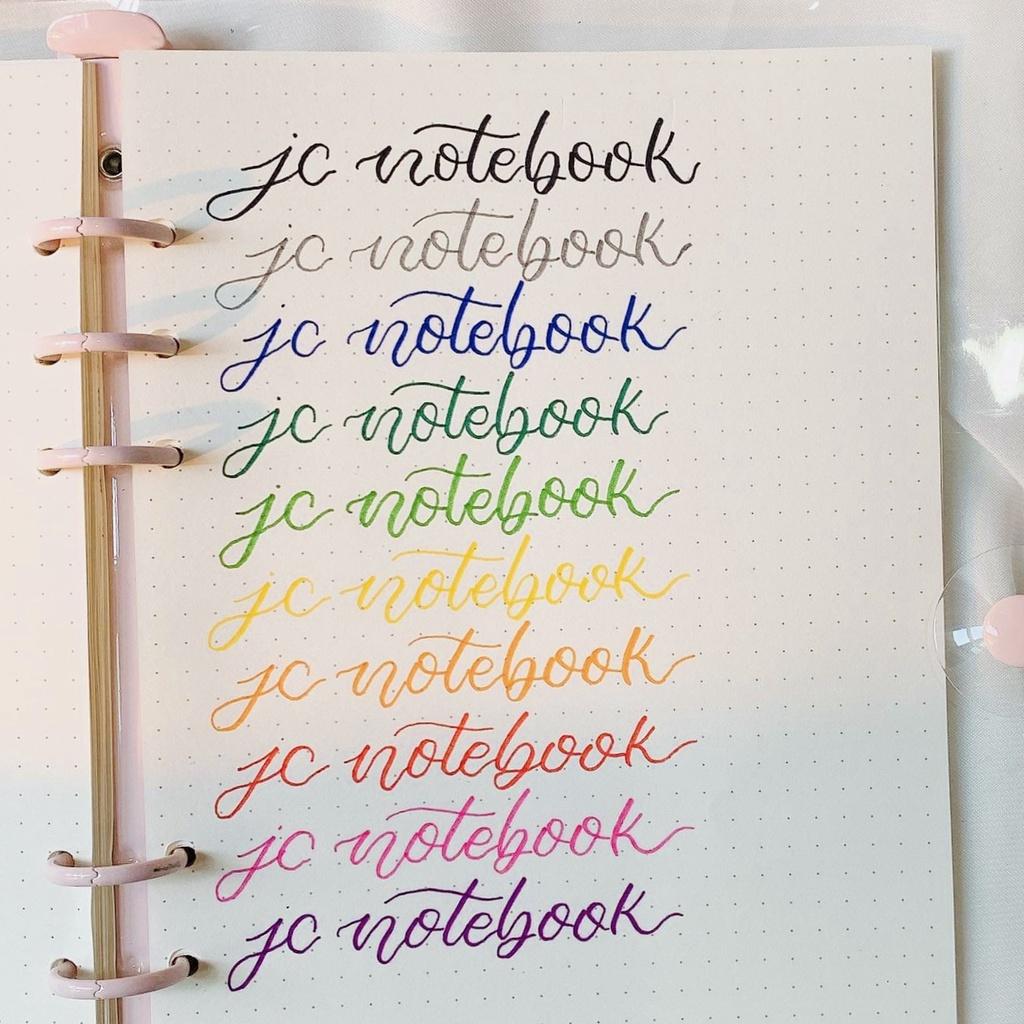 jc notebook
jc notebook
jc notebook
jc notebook
jc notebook
jc notebook
jc notebook
jc notebook
jc notebook
jc notebook